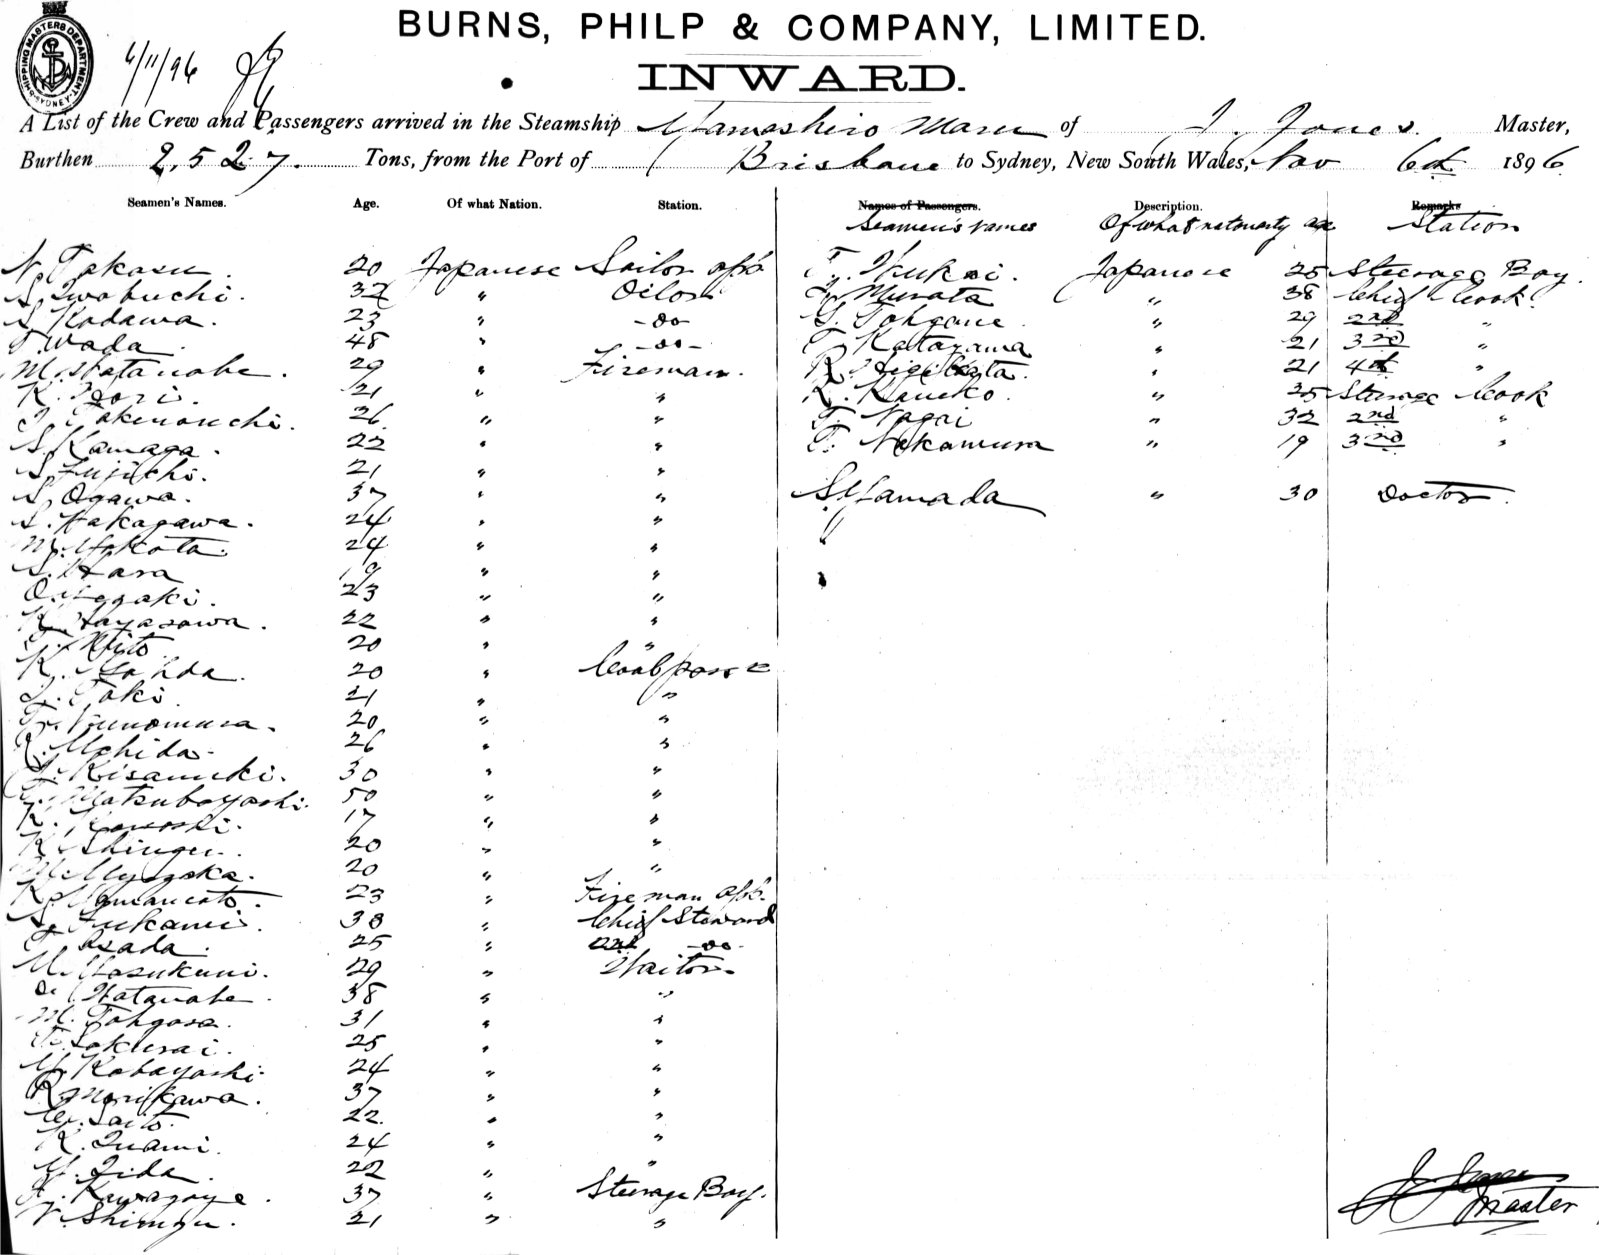 BURNS, PHILP & COMPANY, LIMITED.
INWARD.
SHIPPING MASTERS DEPARTMENT SYDNEY
6/11/96
A List of the Crew and Passengers arrived in the Steamship Yamashiro Maru of J. Jones. Master,
Burthen 2,527. Tons, from the Port of Brisbane to Sydney, New South Wales, Nov 6th 1896
Seamen's Names. Age. Of what Nation. Station.
N. Takasu. 20 Japanese Sailor app
S. Iwabuchi. 32 " Oilor
S. Kodawa. 23 " -do-
T. Wada. 48 " -do-
M. Watanabe. 29 " Fireman.
K. Mori. 21 " "
T. Takenouchi. 26 " "
S. Kamaga. 22 " "
S. Fujichi. 21 " "
S. Ogawa. 37 " "
S. Nakagawa. 24 " "
M. Yokota. 24 " "
S. Hara 19 " "
O. 23 " "
K. Hayasawa. 22 " "
Kito 20 " "
K. Honda. 20 " Coalpasser
Taki 21 " "
20 " "
K. Uchida. 26 " "
Kisanuki. 30 " "
T. Matsubayashi. 50 " "
K. 17 " "
K. Shingu. 20 " "
20 " "
K. Yamamoto. 23 " Fireman app.
S. Fukami. 38 " Chief Steward
T. Asada. 25 " 2nd -do-
M. Yasukuni. 29 " Waitor
Watanabe. 38 " "
M. Tohgasa. 31 " "
T. Sakurai. 25 " "
Y. Kobayashi. 24 " "
R. Morikawa. 37 " "
Saito. 22 " "
K. Inami. 24 " "
Y. Iida. 22 " "
Kawagoye. 37 " Steerage Boy.
Shingu. 21 " "
Names of Passengers. Description. Remarks
Seamen's names Of what nationality age Station
T. Japanese 25 Steerage Boy.
Murata " 38 Chief Cook
Tohgane " 29 2nd "
T. Katayama " 21 3rd "
K. " 21 4th "
K. Kaneko. " 35 Steerage Cook
T. Nagai " 32 2nd
T. Nakamura " 19 3rd "
S. Yamada " 30 Doctor.
J Jones
Master